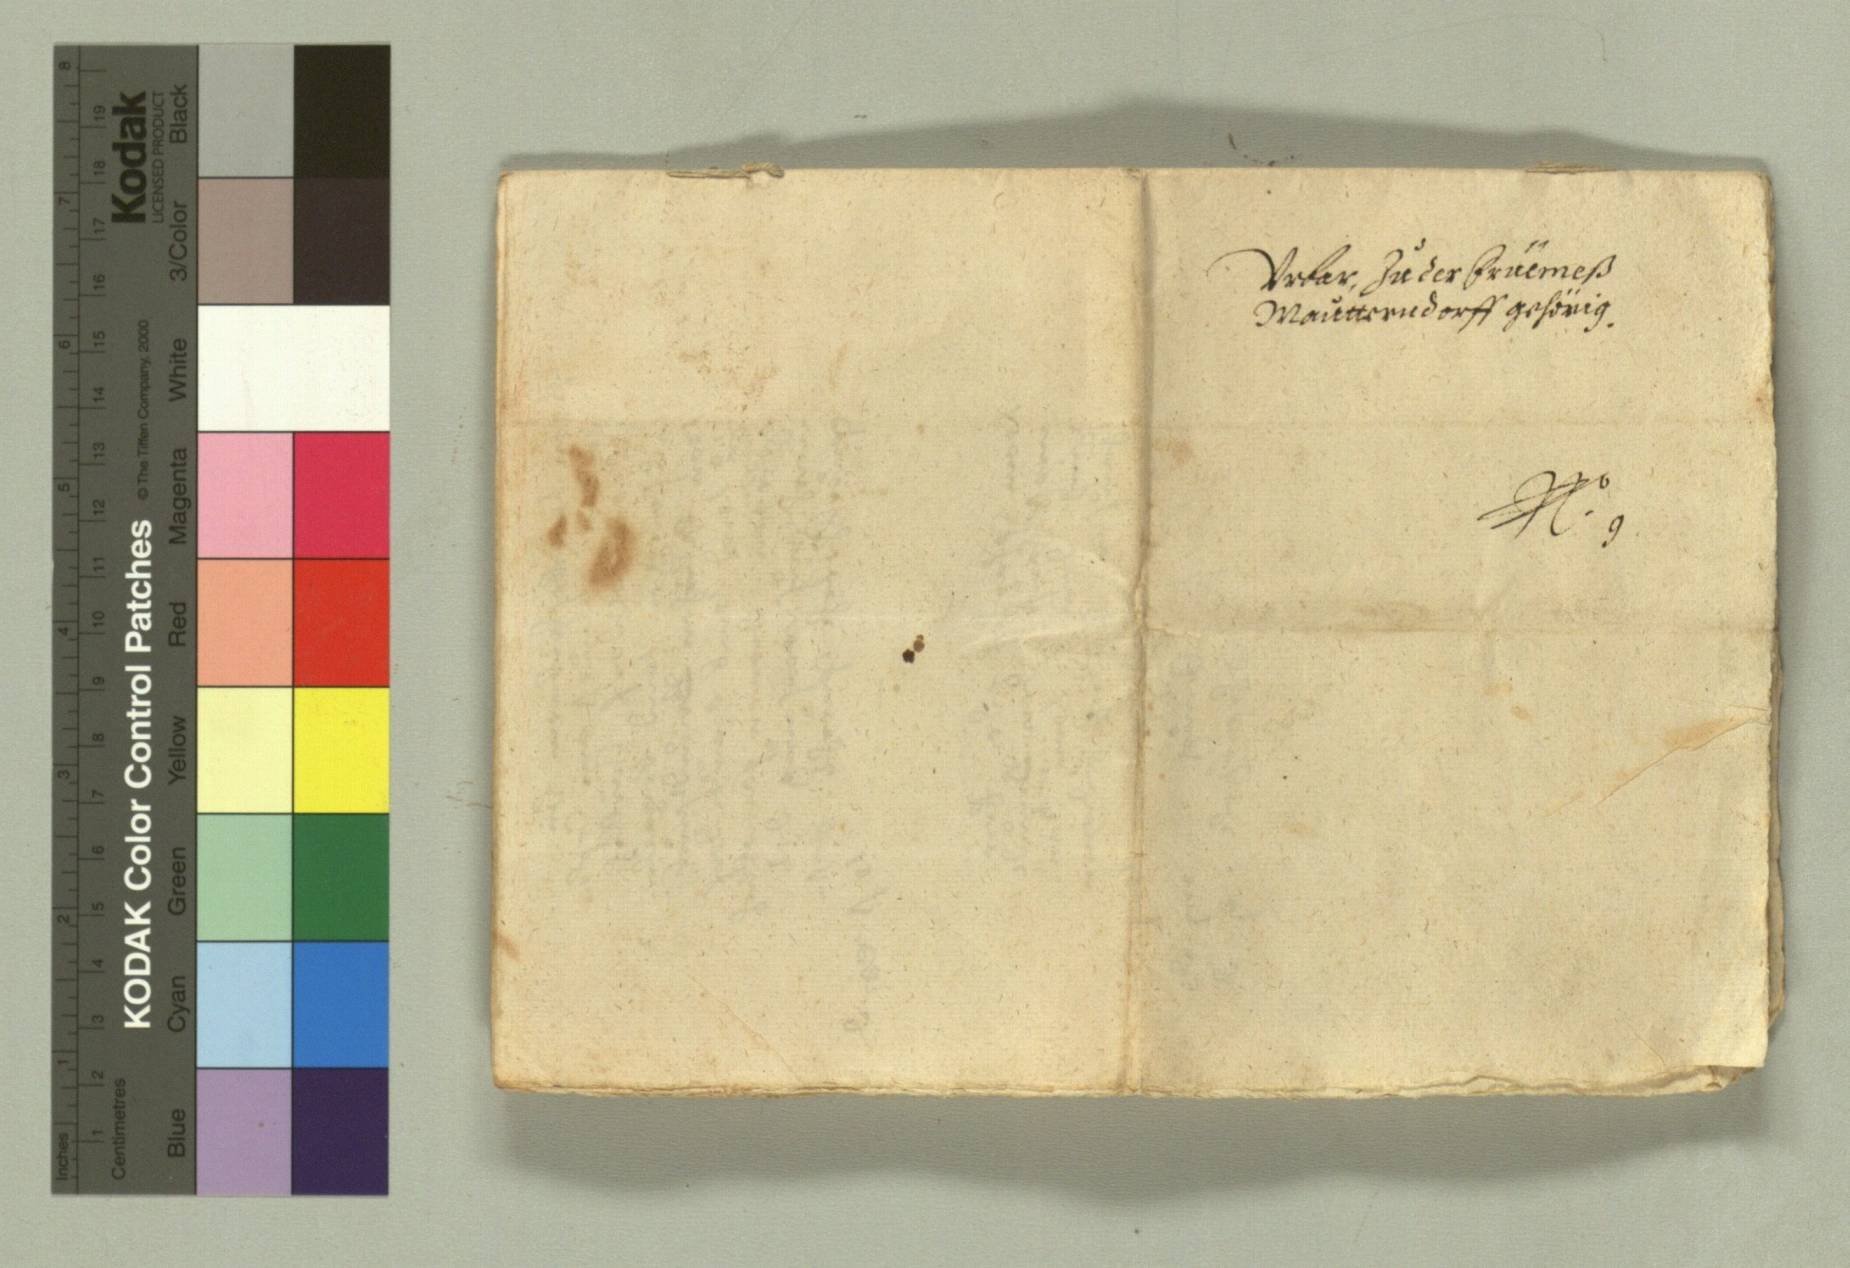 Kodak
LICENSED PRODUCT
KODAK Color Control Patches
© The Tiffen Company, 2000
Blue Cyan Green Yellow Red Magenta White 3/Color Black
Inches 1 2 3 4 5 6 7 8
Centimetres 1 2 3 4 5 6 7 8 9 10 11 12 13 14 15 16 17 18 19
Vrbar, Zů der Früemeß
Mautterndorff gehörig.
N.º 9